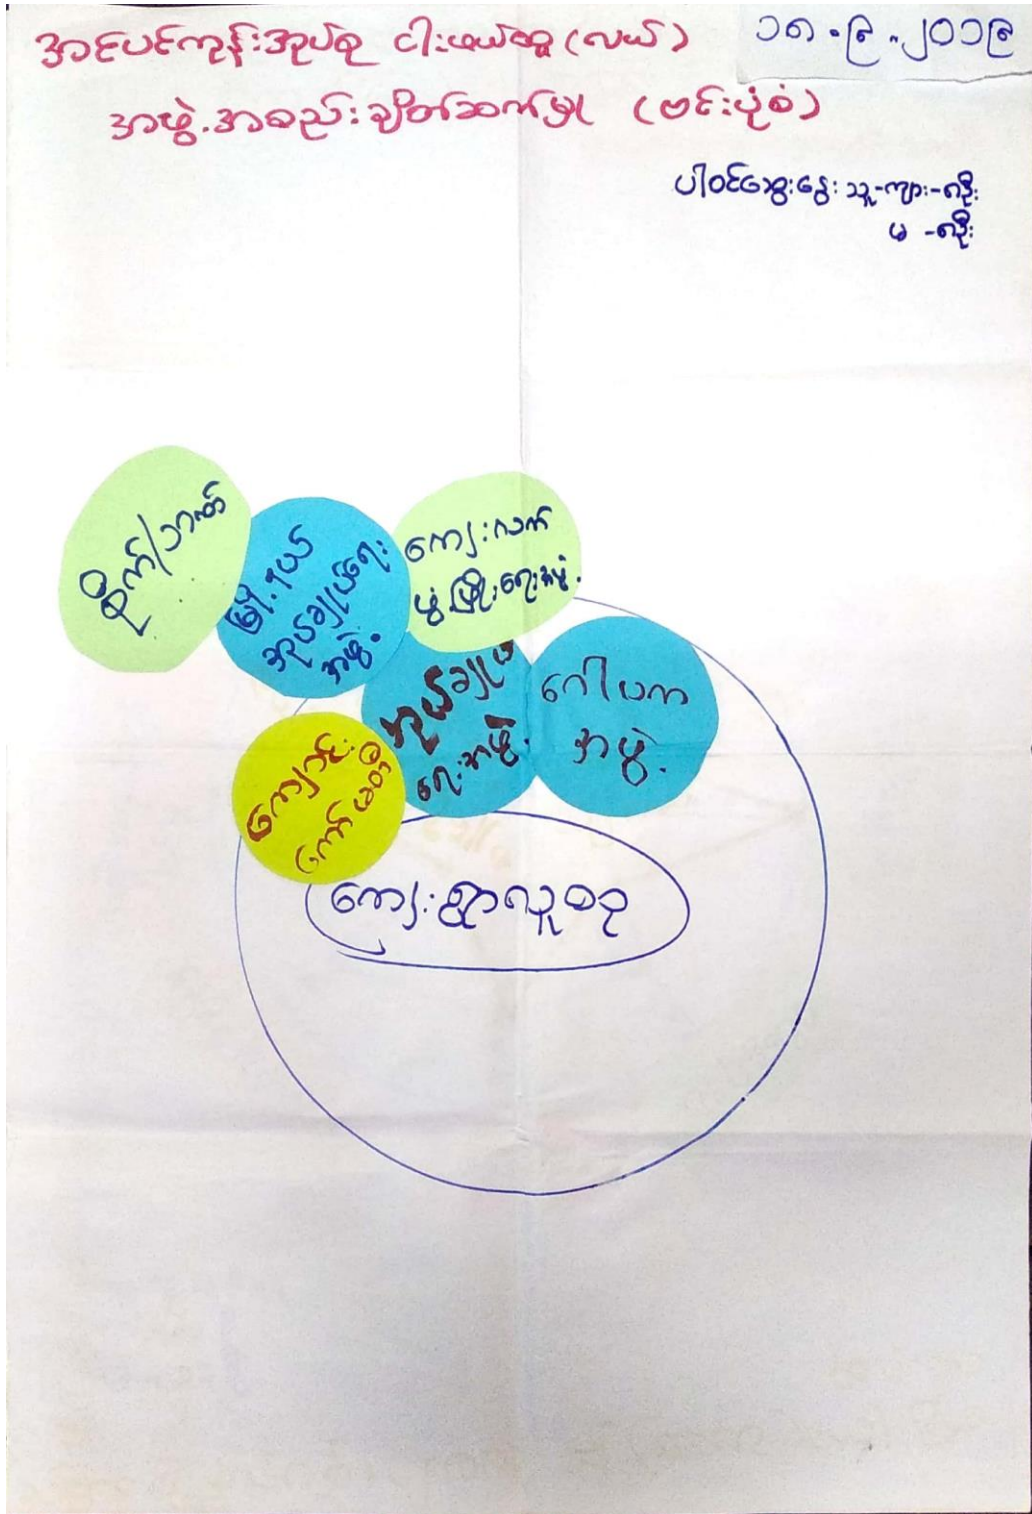 အင်ပင်ကုန်းအုပ်စု ငါးဖယ်ဆူ (လယ်)
၁၈.၉.၂၀၁၉
အဖွဲ့အစည်းချိတ်ဆက်မှု (ဗင်းပုံစံ)
ပါဝင်ဆွေးနွေးသူ-ကျား-၈ဦး
မ -၈ဦး
စိုက်/ဘဏ်
မြို့နယ်
အုပ်ချုပ်ရေး
အဖွဲ့
ကျေးလက်
ဖွံ့ဖြိုးရေးအဖွဲ့
အုပ်ချုပ်
ရေးအဖွဲ့
ဂေါပက
အဖွဲ့
ကျောင်း
ကော်မတီ
ကျေးရွာလူထု